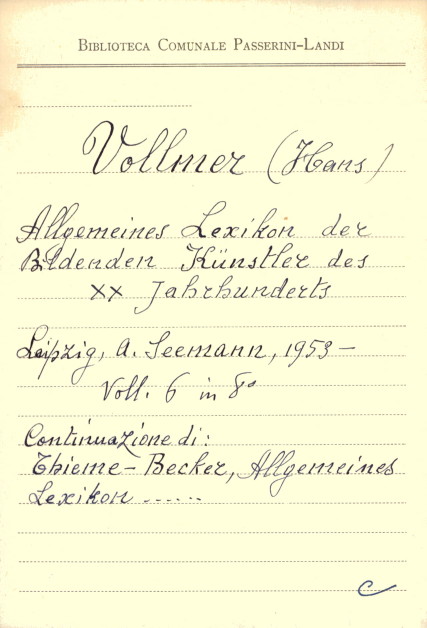 BIBLIOTECA COMUNALE PASSERINI-LANDI
Vollmer (Hans)
Allgemeines Lexikon der
Bildenden Künstler des
XX Jahrhunderts
Leipzig, A. Seemann, 1953 -
Voll. 6 in 8°
Continuazione di:
Thieme - Becker, Allgemeines
Lexikon ......
C